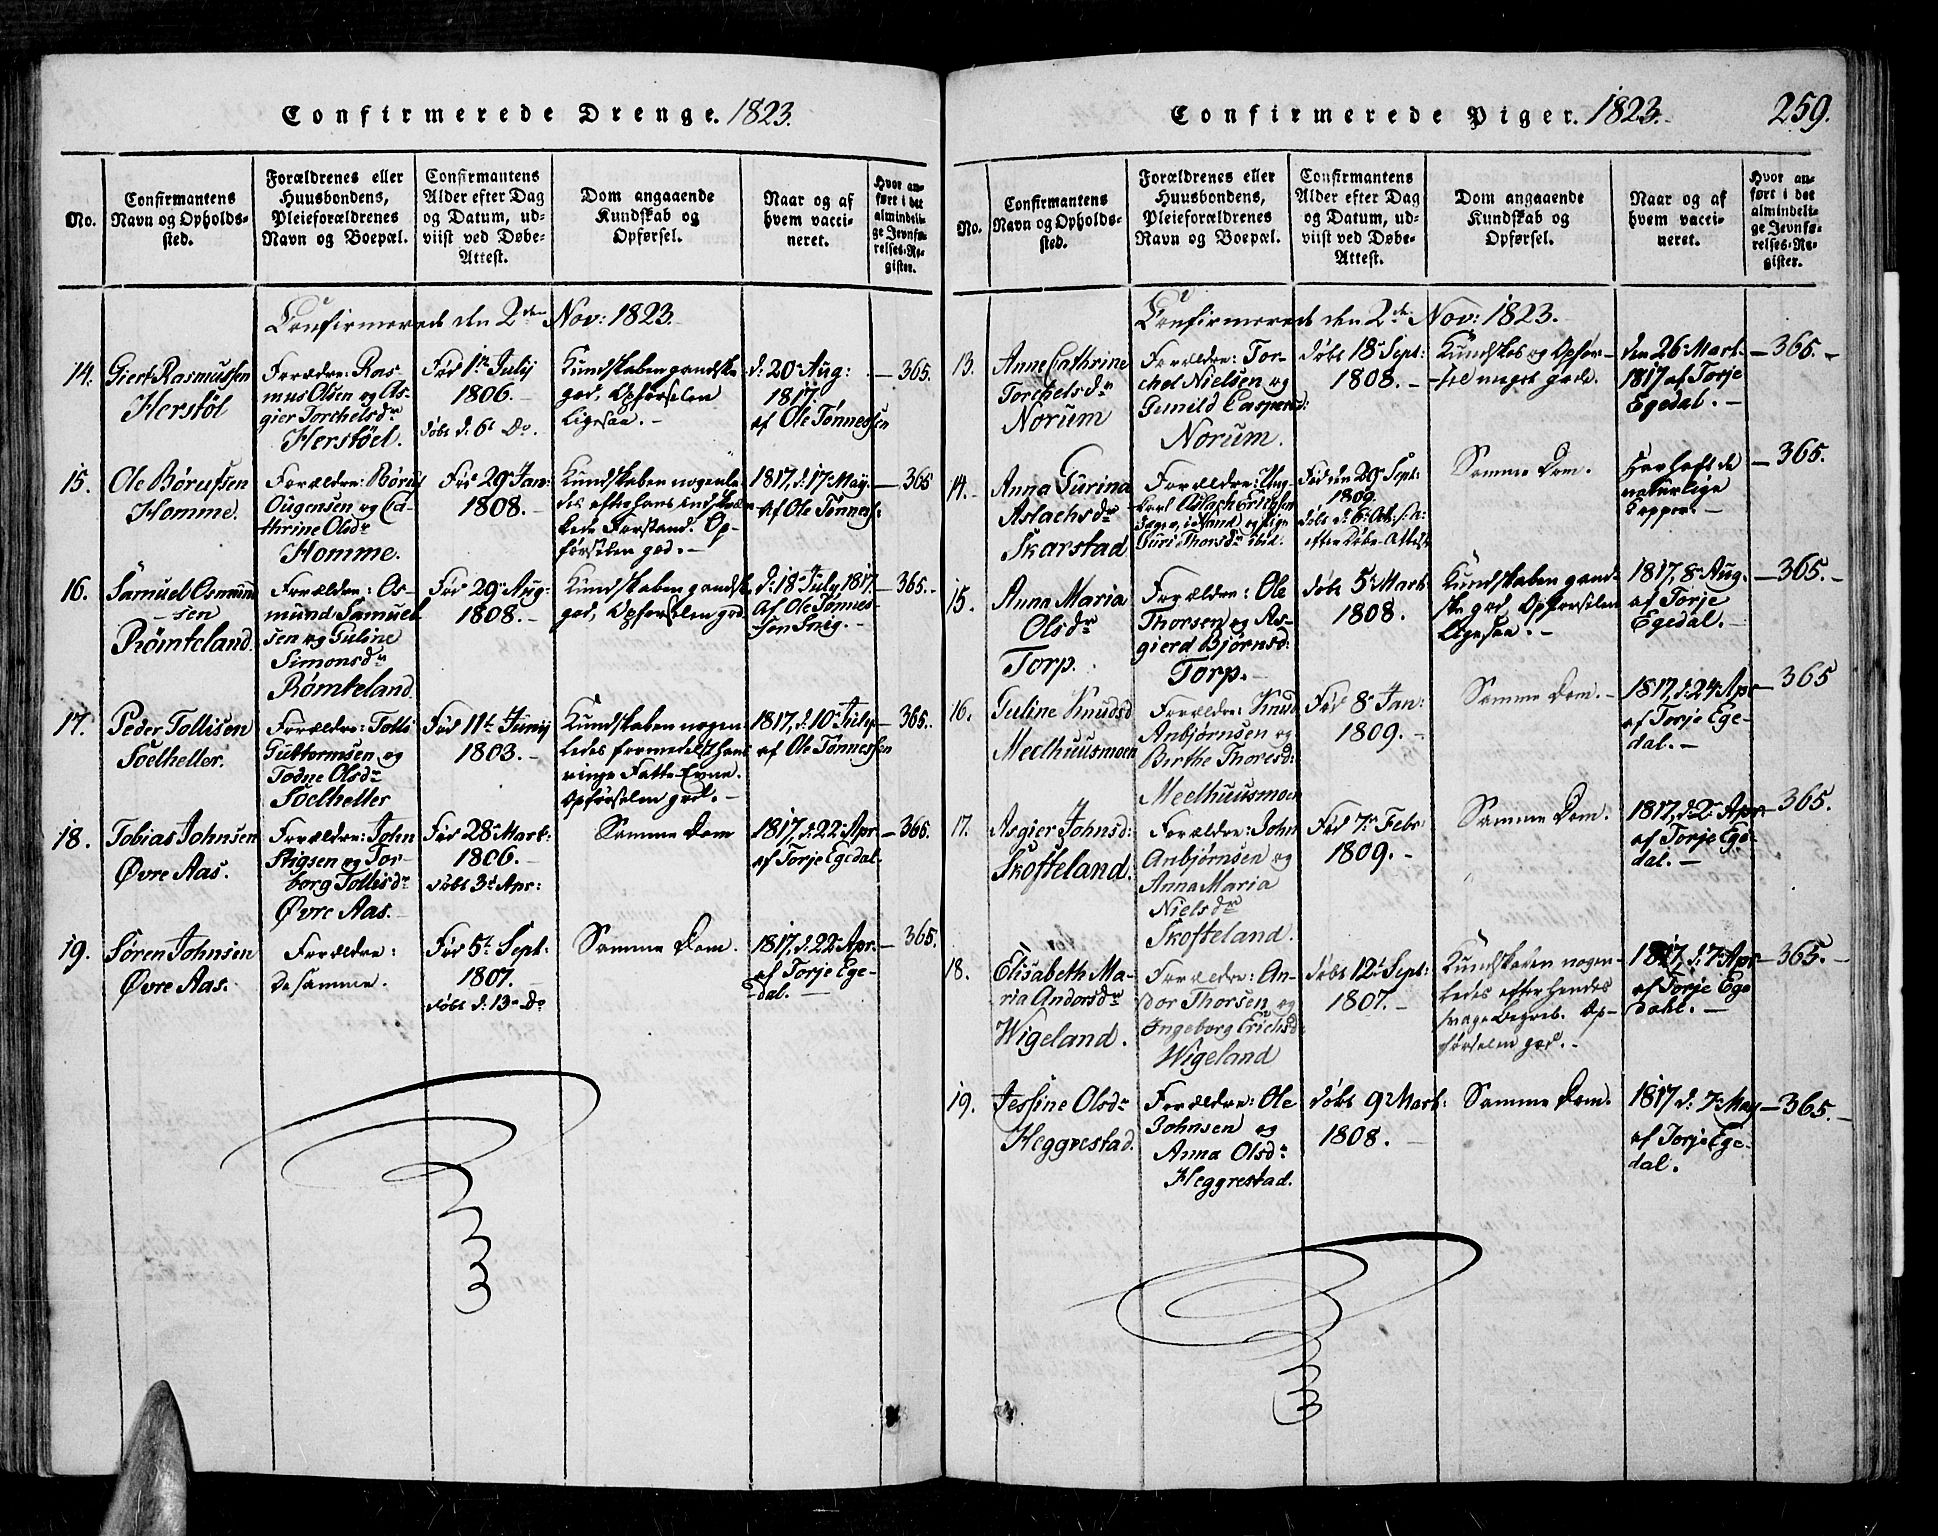 Confirmerede Drenge. 1823.
No.
Confirmantens
Navn og Opholds-
sted.
Forældrenes eller
Huusbondens,
Pleieforældrenes
Navn og Boepæl.
Confirmantens
Alder efter Dag
og Datum, ud-
viist ved Døbe-
Attest.
Dom angaaende
Kundskab og
Opførsel.
Naar og af
hvem vacci-
neret.
Hvor an-
ført i det
almindeli-
ge Jevnfø-
relses-Re-
gister.
Confirmerede den 2den Nov: 1823.
14.
Giert Rasmussen
Herstøl
Forældre: Ras-
mus Olsen og As-
gier Torchelsdr
Herstøel.
Fød 1ste July
1806. -
døbt d: 6te Do.
Kundskaben gandske
god, Opførselen
Ligesaa. -
d: 20 Aug:
1817.
af Ole Tønnessen
- 365.
15.
Ole Børufsen
Homme.
Forældre: Børuf
Ougensen og Ca-
thrine Olsdr
Homme.
Fød 29de Jan:
1808. -
Kundskaben nogenle-
des efter hans indskræn-
kede Forstand. Op-
førselen god. -
1817, d: 17 May.
af Ole Tønness:
- 365
16.
Samuel Osmund-
sen
Rømteland.
Forældre: Os-
mund Samuel-
sen og Guline
Simonsdr
Rømteland.
Fød 29de Aug:
1808. -
Kundskaben gandske
god, Opførselen god.
d: 18 July 1817.
Af Ole Tønnes-
sen Snig. -
365. -
17.
Peder Tollisen
Soelheller.
Forældre: Tolli
Guttormsen og
Todne Olsdr
Soelheller
Fød 11te Juny
1803. -
Kundskaben nogen-
ledes formedelst hans
ringe Fatte-Evne.
Opførselen god. -
1817, d: 10 July
af Ole Tønnessen
- 365.
18.
Tobias Johnsen
Øvre Aas.
Forældre: John
Stigsen og Tor-
borg Tollisdr
Øvre Aas.
Fød 28de Mart:
1806. -
døbt 3de Apr:
Samme Dom
1817, d: 22 Apr
af Torje Egedal.
- 365.
19.
Søren Johnsen
Øvre Aas.
Forældre:
De samme.
Fød 5te Sept:
1807.
døbt d: 13de Do
Samme Dom.
1817, d: 22 Apr.
af Torje Ege-
dal. -
- 365.
Confirmerede Piger. 1823. 259.
No.
Confirmantens
Navn og Opholds-
sted.
Forældrenes eller
Huusbondens,
Pleieforældrenes
Navn og Boepæl.
Confirmantens
Alder efter Dag
og Datum, ud-
viist ved Døbe-
Attest.
Dom angaaende
Kundskab og
Opførsel.
Naar og af
hvem vacci-
neret.
Hvor an-
ført i det
almindeli-
ge Jevnfø-
relses-Re-
gister.
Confirmerede den 2de Nov: 1823.
13.
Anne Cathrine
Torchelsdr
Norum
Forældre: Tor-
chel Nielsen og
Gunild Caspersd:
Norum.
døbt 18de Sept:
1808. -
Kundskab og Opfør-
sel meget gode.
den 26 Mart.
1817 af Torje
Egedal. -
- 365. -
14. -
Anna Gurina
Aslachsdr
Skarstad
Forældre: Ung-
karl Aslach Erichsen
og Pige
Guri Thorsdr ibid:
Fød den 29de Sept:
1809.
døbt d: 6te Oct:
efter Døbe-Attest
Samme Dom.
Har haft de
naturlige
Kopper. -
- 365.
15.
Anna Maria
Olsdr
Torp.
Forældre: Ole
Thorsen og As-
gierd Bjørnsd:
Torp. -
døbt 5te Mart:
1808.
Kundskaben gand-
ske god, Opførselen
ligesaa. -
1817, 8de Aug.
af Torje
Egedal. -
- 365. -
16.
Guline Knudsd
Meelhuusmoen
Forældre: Knud
Anbjørnsen og
Berthe Thoresd:
Meelhuusmoen
Fød 8de Jan:
1809. -
Samme Dom. -
1817, d: 24 Apr
af Torje Ege-
dal. -
- 365
17.
Asgier Johnsd:
Skofteland.
Forældre: John
Anbjørnsen og
Anna Maria
Nielsdr
Skofteland.
Fød 7de Febr:
1809. -
Samme Dom.
1817, d: 2de Apr
af Torje Ege-
dal. -
- 365.
18.
Elisabeth Ma-
ria Andorsdr
Wigeland.
Forældre: An-
dor Thorsen og
Ingeborg Erichsd:
Wigeland
døbt 12te Sept:
1807. -
Kundskaben nogen-
ledes efter hendes
svage Begreb. Op-
førselen god. -
1817, d: 7 Apr
af Torje Ege
dahl. -
- 365. -
19.
Jessine Olsdr
Heggrestad.
Forældre: Ole
Johnsen og
Anna Olsdr
Heggrestad.
døbt 9de Mart:
1808. -
Samme Dom.
1817 d: 7de May
af Torje Ege-
dal.
- 365. -